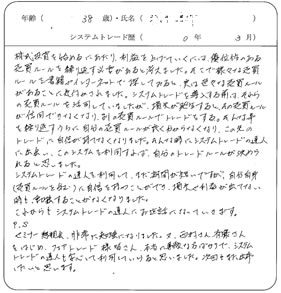 年齢( 38 歳)・氏名(
システムトレード歴( 0 年 3月)
株式投資を始めるにあたり、利益を上げていくには、優位性のある
売買ルールを繰り返す必要があると考えました。そこで様々な売買
ルールを書籍やインターネットで探してみると、実は色々な売買ルール
があることに気付かされました。システムトレードを導入する前は、それら
の売買ルールを活用していましたが、損失が発生すると、その売買ルール
が信用できなくなり、別の売買ルールでトレードをする。そんな事
を繰り返すうちに自分の売買ルールが良く分からなくなり、この先の
トレードに自信が持てなくなりました。そんな時にシステムトレードの達人
に出会い、このシステムを利用すれば、自分のトレードルールが決められ
ると思いました。
システムトレードの達人を利用して、まだ期間が短いですが、自分自身
(売買ルールを含む)に自信を持つことができ、損失や利益が出ていない
時も
これからもシステムトレードの達人にお世話になっていきます。
P.S
セミナー 非常に勉強になりました。又、西村さん 斉藤さん
をはじめ、フェアトレード 様 皆さん、本当に素敵な方ばかりで、システム
トレードの達人を安心して利用していけると思いました。次回もぜひ
たいと思います。